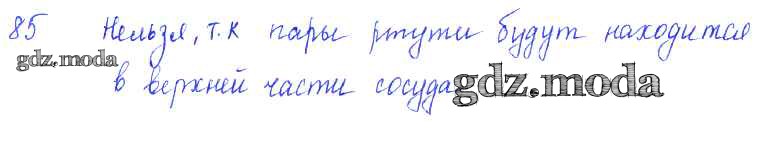 85 Нельзя, т.к пары ртути будут находится
gdz.moda
в верхней части сосуда
gdz.moda